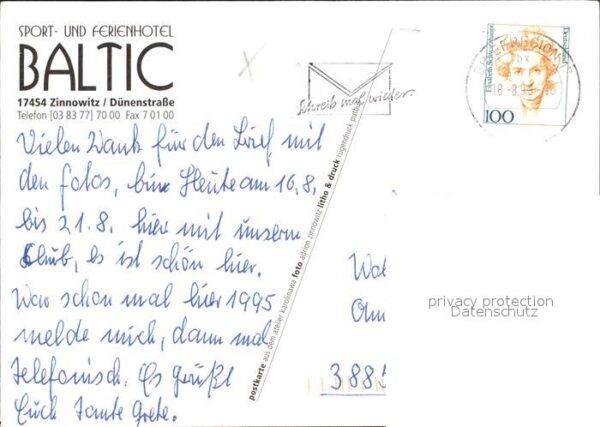 SPORT- UND FERIENHOTEL
BALTIC
17454 Zinnowitz / Dünenstraße
Telefon [03 83 77] 70 00 Fax 7 01 00
Vielen Dank für den Brief mit
den Fotos, bin Heute am 16.8.
bis 21.8. hier mit unserm
Club, es ist schön hier.
War schon mal hier 1995
melde mich, dann mal
telefonisch. Es grüßt
Euch Tante Grete.
postkarte aus dem atelier karolinawa foto adrion zinnowitz litho & druck rügendruck putbus
Schreib mal wieder
Deutschland
100
18.-8.9
388
privacy protection
Datenschutz